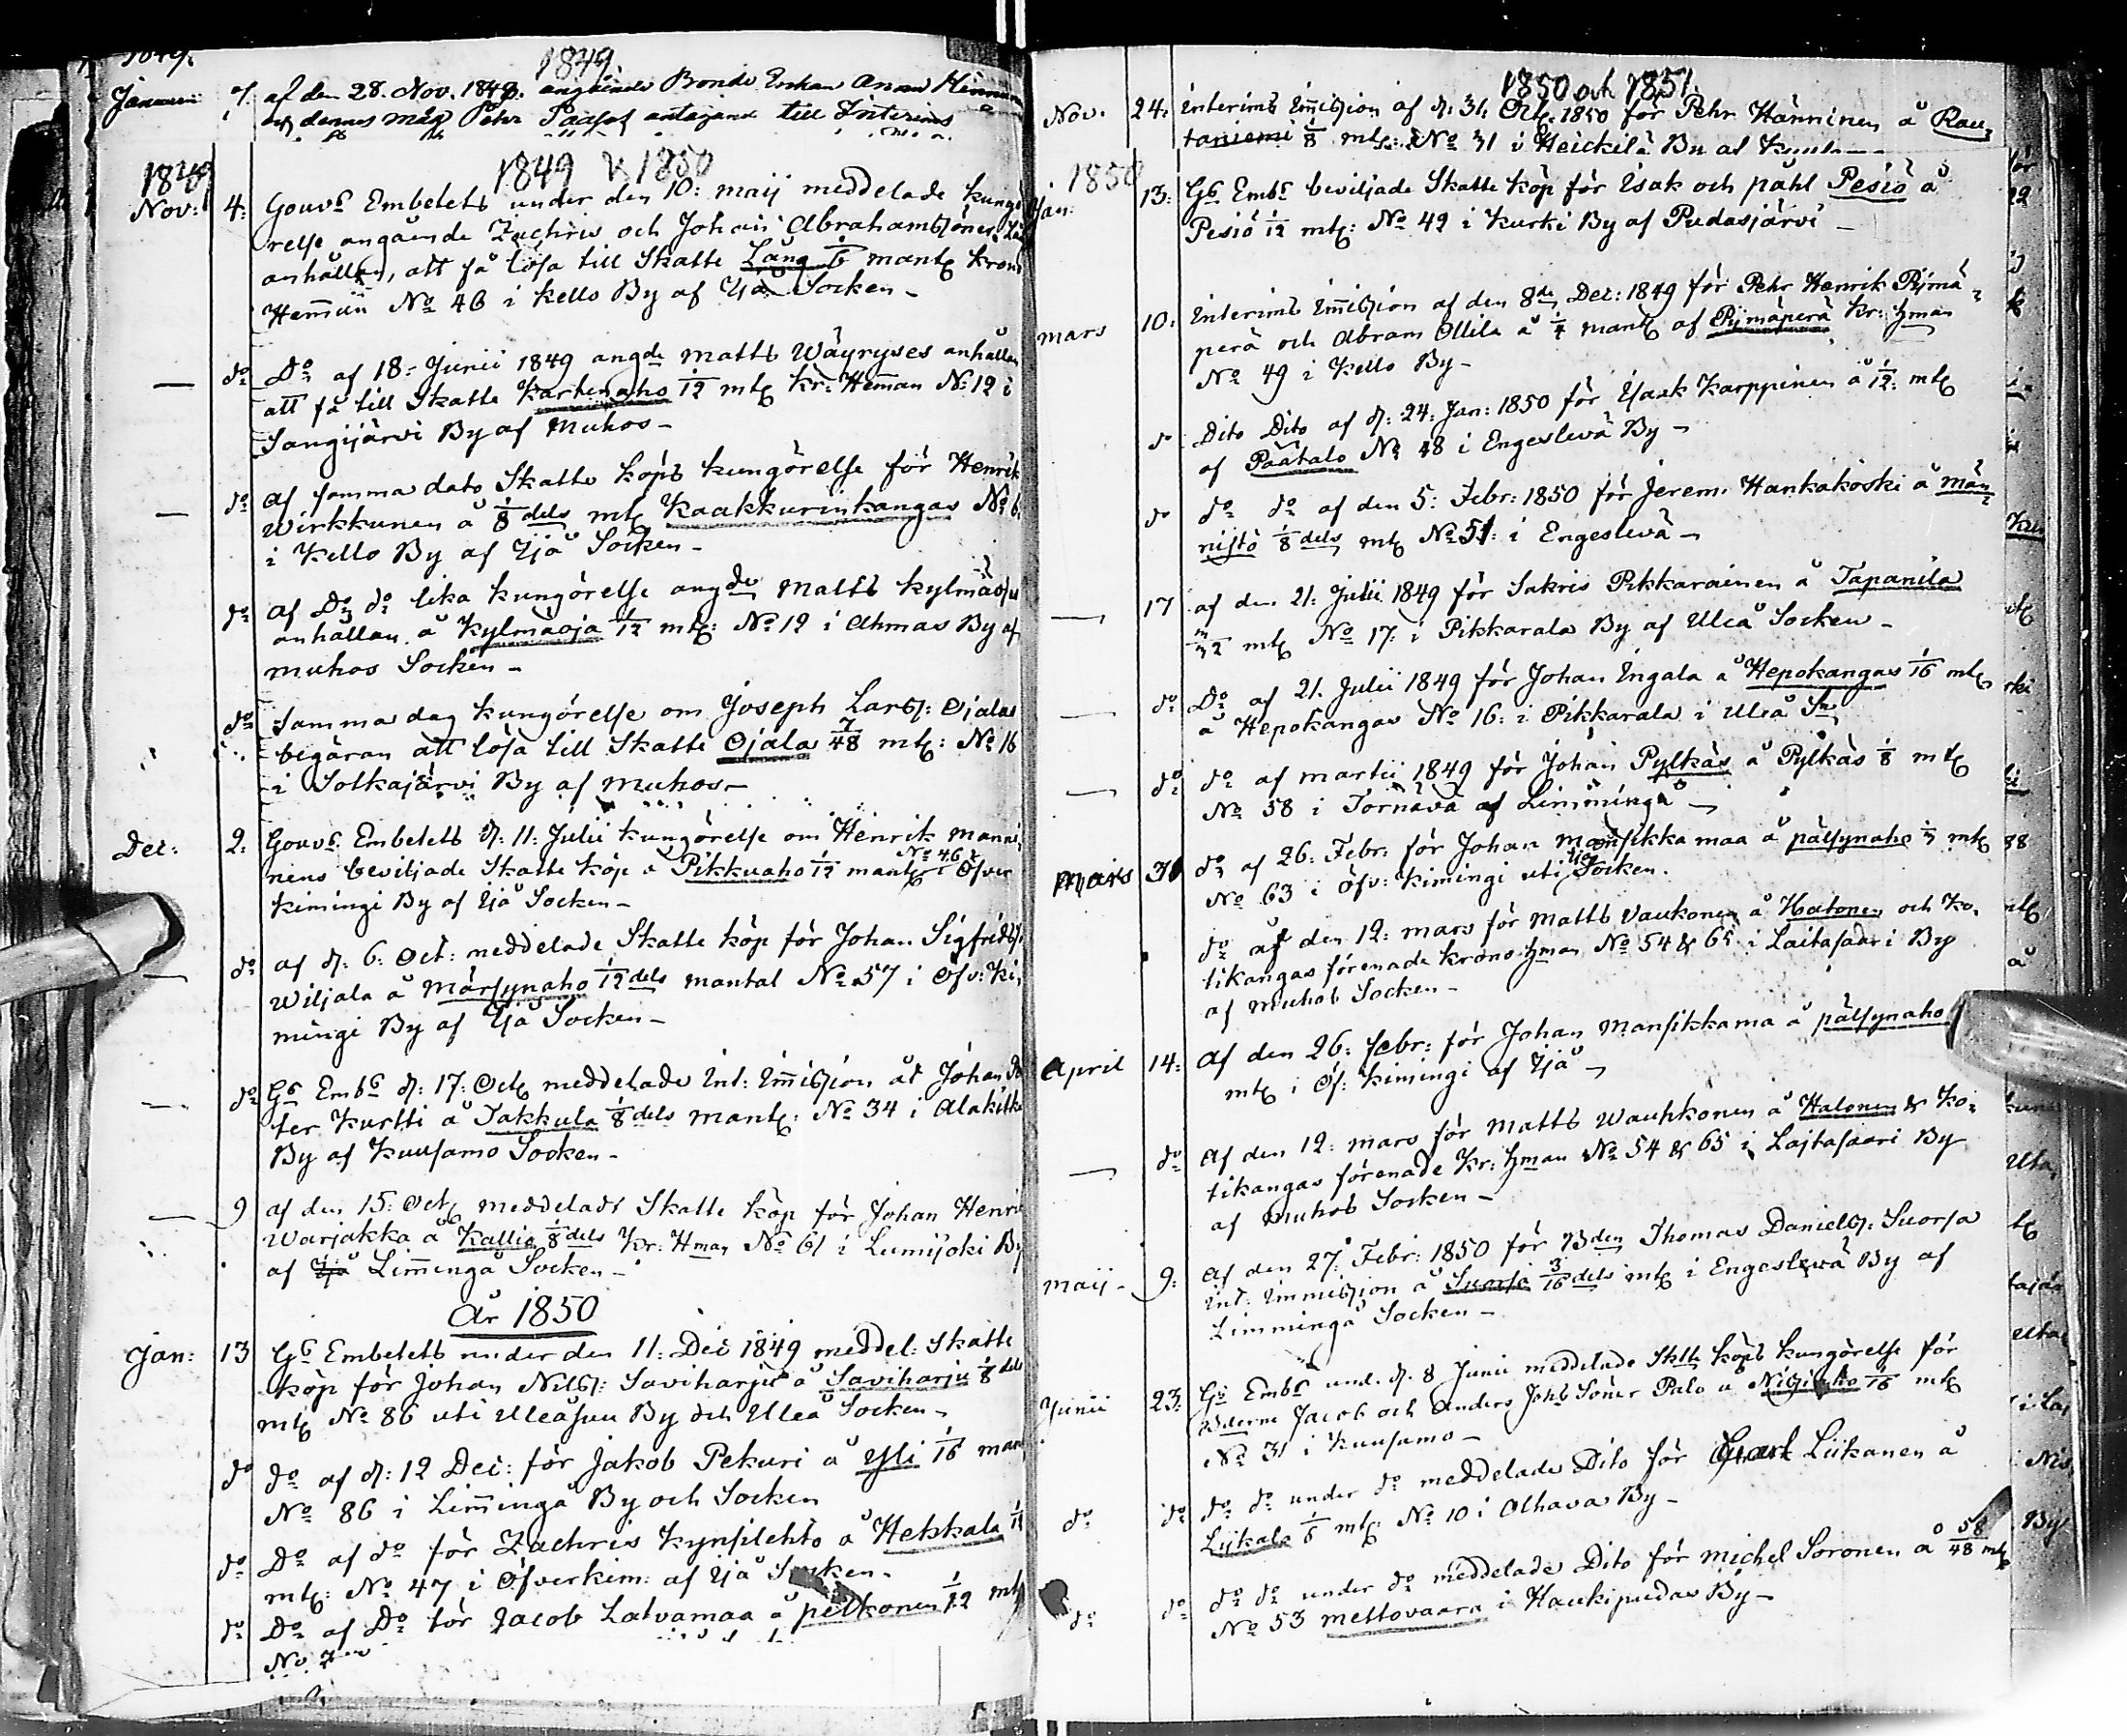 1849.
Januarii 7. af den 28. Nov. 1848. angående Bonde Enkan Anna
och dennes måg Pehr antagande till Interims
1849 & 1850
1849
Nov: 4: Gouvs Embetets under den 10: maij meddelade kungö
relse angående Zachris och Johan Abrahamssöners
anhållan, att få lösa till Skatte Lång 1/6 mantl krono
Hemman No 46 i Kello By af Ijå Socken –
— do Do af 18: Junii 1849 angde Matts Wäyryses anhållan
att få till Skatte Karhenaho 1/12 mtl kr: Hemman No 12 i
Sangijärvi By af Muhos –
— do af samma dato Skatte köps kungörelse för Henrik
Wirkkunen å 1/8 dels mtl Kaakkurinkangas No 6.
i Kello By af Ijå Socken –
do af Do do lika kungörelse angde Matts Kylmäoja
anhållan å Kylmäoja 1/12 mtl: No 12 i Ahmas By af
Muhos Socken –
do Samma dag kungörelse om Joseph Larss: Ojalas
begäran att lösa till Skatte Ojala 7/48 mtl: No 16
i Sotkajärvi By af Muhos –
Dec: 2: Gouvs Embetets d: 11: Julii kungörelse om Henrik Manni-
nens beviljade Skatte köp å Pikkuaho 1/12 mantl No 46 i Öfver
kimingi By af Ijå Socken –
— do af d: 6: Oct: meddelade Skatte köp för Johan Sigfridss:
Wiljala å Märsynaho 1/12 dels mantal No 57 i Öfv: Ki-
mingi By af Ijå Socken –
— do Gs Embs d: 17: Octb meddelade Int: Immission åt Johan
ter Kurtti å Takkula 1/8 dels mantl: No 34 i Alakitka
By af Kuusamo Socken –
— 9 af den 15: Octb meddelade Skatte köp för Johan Henric
Warjakka å Kallio 1/8 dels Kr: Hman No 61 i Lumijoki By
af Ijå Limminga Socken –
År 1850
Jan: 13 Gs Embetets under den 11: Dec 1849 meddel: Skatte
köp för Johan Nilss: Saviharju å Saviharju 1/8 dels
mtl No 86 uti Uleåsuu By och Uleå Socken –
do do af d: 12 Dec: för Jakob Pekuri å Yli 1/16 mant
No 86 i Limmingå By och Socken
do Do af do för Zachris Kynsilehto å Hekkala
mtl: No 47 i Öfverkim: af Ijå Socken.
do Do af Do för Jacob Latvamaa å Pelkonen 1/12 mtl
No
1850 och 1851.
Nov. 24: Interims Immission af d: 31: Octb. 1850 för Pehr Hänninen å Rau-
taniemi 1/8 mtl: No 31 i Heickilä By af
1850
Jan: 13: Gs Embs beviljade Skatte köp för Isak och Påhl Pesiö å
Pesiö 1/12 mtl: No 42 i Kurki By af Pudasjärvi –
mars 10: Interims Immission af den 8de Dec: 1849 för Pehr Henrik Pijmä-
perä och Abram Ollila å 1/4 mantl af Pijmäperä Kr: hman
No 49 i Kello By –
do Dito Dito af d: 24: Jan: 1850 för Isaak Karppinen å 1/12: mtl
af Päätalo No 48 i Engeslevä By –
do do do af den 5: Febr: 1850 för Jerem. Hankakoski å Män-
nistö 1/8 dels mtl No 51: i Engeslevä –
— 17 af den 21: Julii 1849 för Sakris Pikkarainen å Tapanila
/32 mtl No 17: i Pikkarala By af Uleå Socken –
— do Do af 21. Julii 1849 för Johan Ingala å Hepokangas 1/16 mtl
å Hepokangas No 16: i Pikkarala i Uleå Sn
— do do af martii 1849 för Johan Pylkäs å Pylkäs 1/8 mtl
No 58 i Tornävä af Limminga –
Mars 31 do af 26: Febr: för Johan Mansikkamaa å Pälsynaho mtl
No 63 i Öfv: Kimingi uti Ijå Socken.
do af den 12: mars för Matts Vaukonen å Halonen och Ko-
tikangas förenade krono hman No 54 & 65 i Laitasaari By
af Muhos Socken –
April 14: af den 26: febr: för Johan Mansikkama å Pälsynaho
mtl i Öf: Kimingi af Ijå –
— do af den 12: mars för Matts Wauhkonen å Halonen & Ko-
tikangas förenade Kr: hman No 54 & 65 i Lajtasaari By
af Muhos Socken –
Maij – 9: af den 27: Febr: 1850 för Bden Thomas Daniels: Suorsa
Int: Immission å Suorsa 3/16 dels mtl i Engeslevä By af
Limminga Socken –
Junii 23: Gs Embs und. d. 8 Junii meddelade Sktte köps kungörelse för
Bderne Jacob och Anders Johs Söner Palo å 1/16 mtl
No 31 i Kuusamo –
do do do do under do meddelade Dito för Liikanen å
Lijkala mtl No 10 i Olhava By –
do do do do under do meddelade Dito för Michel Soronen å 58/48 mtl
No 53 Mettovaara i Haukipudas By –